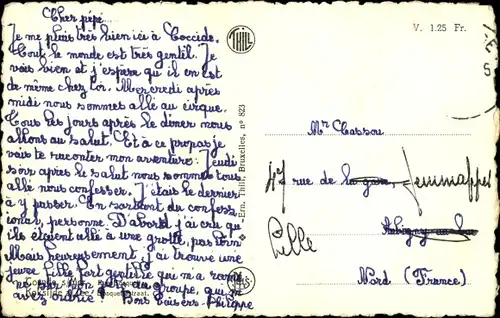 Cher pépé
Je me plais très bien ici à Coccide.
Tout le monde est très gentil. Je
vais bien et j'espère qu'il en est
de même chez toi. Mercredi après
midi nous sommes allé au cirque.
Tous les jours après le dîner nous
allons au salut. Et à ce propos je
vais te raconter mon aventure: Jeudi
soir après le salut nous sommes tous
allé nous confesser. J'étais le dernier
à y passer. En sortant du confess
ional, personne. D'abord j'ai cru qu'
ils étaient allé à une grotte, pas loin
Mais heureusement j'ai trouvé une
jeune fille fort gentille qui m'a
Bons baisers - Philippe
THILL
Ern. Thill, Bruxelles, n° 823
V. 1.25 Fr.
Mr Cassou
rue de la gare Jemmapes
Lille
Nord (France)